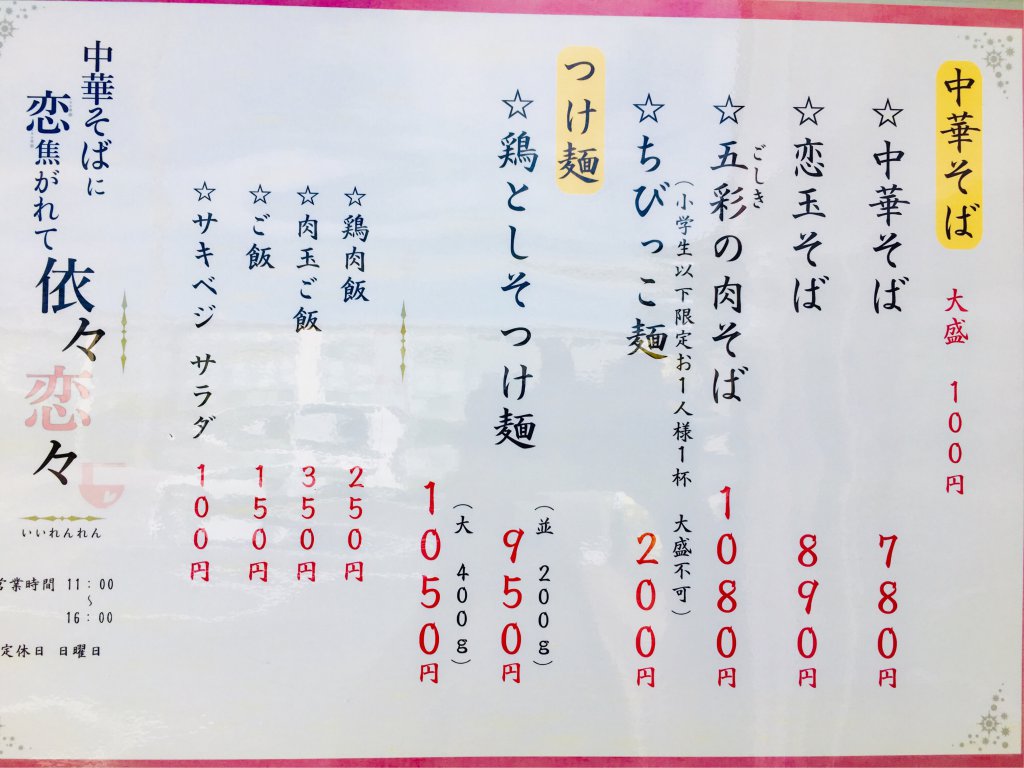 中華そば 大盛 100円
☆中華そば 780円
☆恋玉そば 890円
☆五彩の肉そば 1080円
ごしき
☆ちびっこ麺 200円
(小学生以下限定お1人様1杯 大盛不可)
つけ麺
☆鶏としそつけ麺
(並 200g)
950円
(大 400g)
1050円
☆鶏肉飯 250円
☆肉玉ご飯 350円
☆ご飯 150円
☆サキベジ サラダ 100円
中華そばに
恋焦がれて
依々恋々
いいれんれん
営業時間 11:00
~
16:00
定休日 日曜日